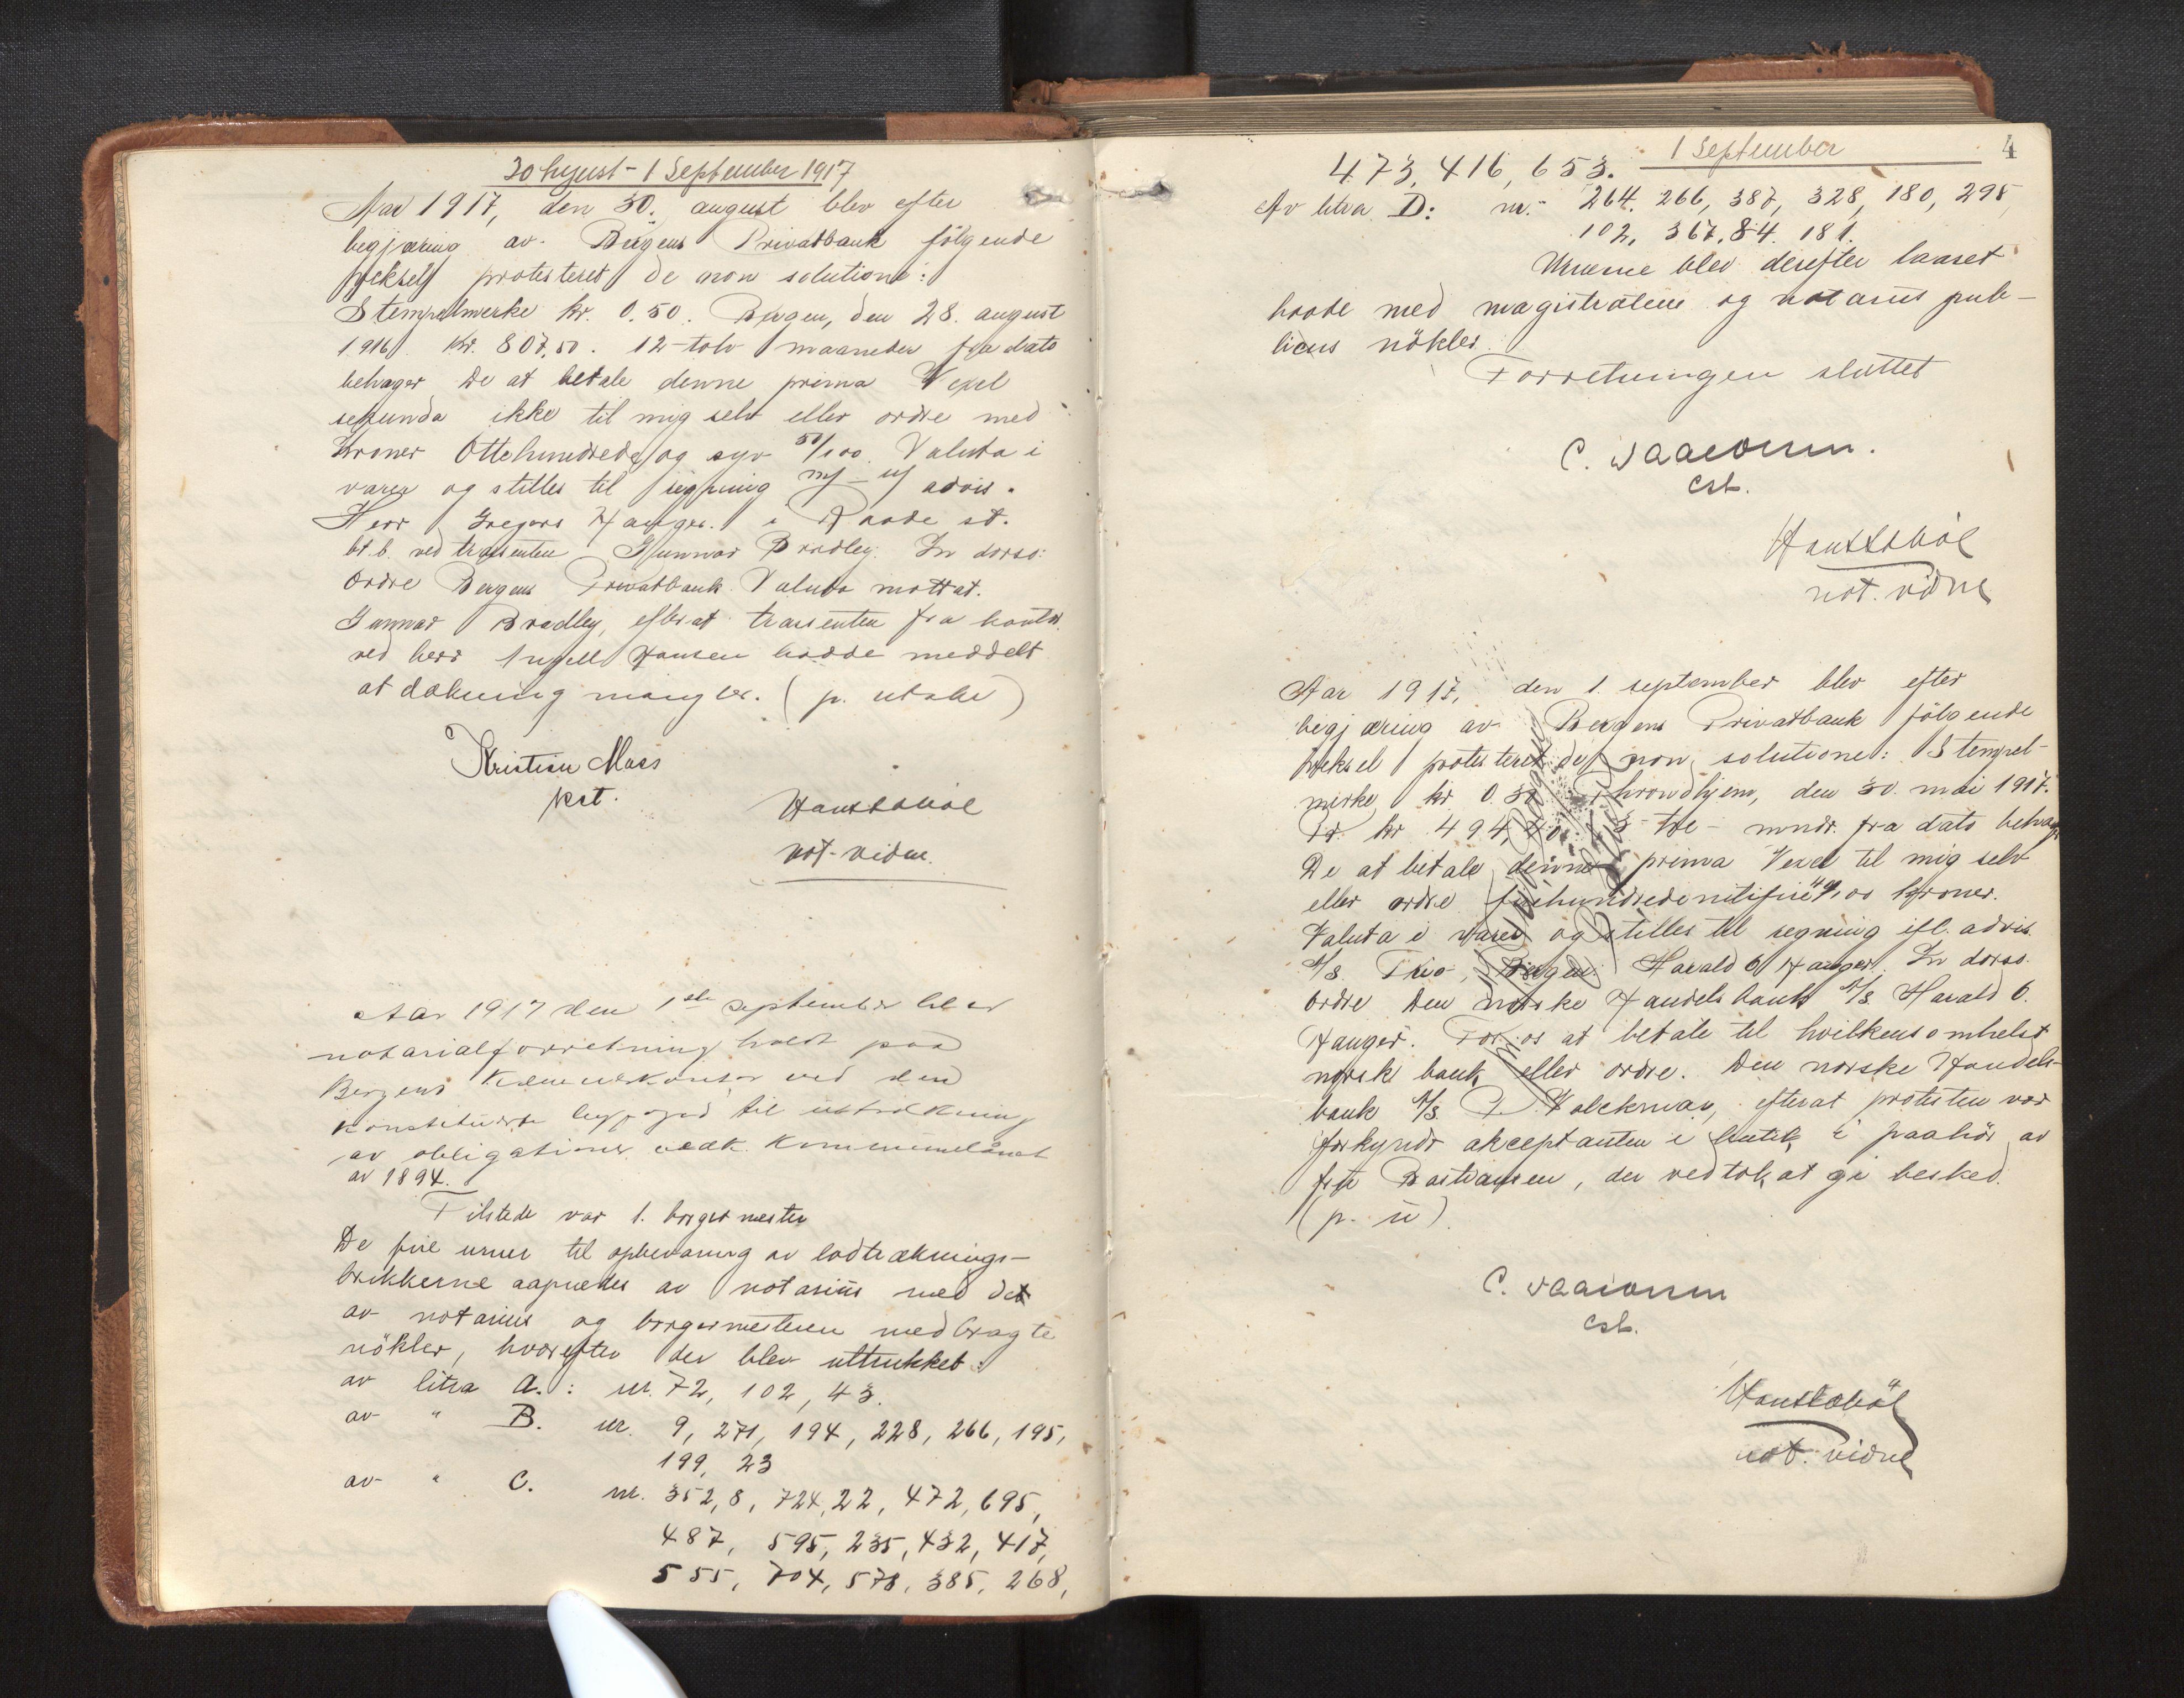 30 August - 1 September 1917
Aar 1917, den 30. august blev efter
begjæring av Bergens Privatbank følgende
veksel protesteret de non solutione:
Stempelmerke kr. 0.50. Bergen, den 28. august
1916. Kr. 807,50. 12-tolv maaneder fra dato
behager De at betale denne prima Vexel
sekunda ikke til mig selv eller ordre med
Kroner Ottehundrede og syv 50/100. Valuta i
varer og stilles til regning advis.
Herr Gregers Hauger i Raade st.
bt. b. ved trassenten Gunnar Bradley. In dorso:
Ordre Bergens Privatbank Valuta mottat.
Gunnar Bradley, efterat trassenten fra kontor
ved herr Hansen hadde meddelt
at dækning mangler. (p. utake)
Kristian Mass
kst.
not-vidne.
Aar 1917 den 1ste september blev
notarialforretning holdt paa
Bergens Kæmnerkontor ved den
konstituerte byfoged til uttrækning
av obligationer vedk. Kommunelånet
av 1894.
Tilstede var 1. borgermester
De fire urner til opbevaring av lodtræknings-
brikkerne aapnedes av notarius med de
av notarius og borgermesteren medbragte
nökler, hvorefter der blev uttrukket:
av litra A. : nr. 72, 102, 43.
av " B. nr. 9, 271, 194, 228, 266, 195,
199, 23
av " C. nr. 352, 8, 724, 22, 472, 695,
487, 595, 235, 432, 417,
555, 704, 578, 385, 268,
1 September 4
473, 416, 653.
Av litra D: nr. 264. 266, 387, 328, 180, 295
102, 367. 84. 181.
Urnerne blev derefter laaset
baade med magistratens og notarius pub-
licus nökler.
Forretningen sluttet
C. Isaacsen.
cst.
not. vidne
Aar 1917, den 1. september blev efter
begjæring av Bergens Privatbank følgende
veksel protesteret de non solutione: Stempel-
merke kr 0.30 Throndhjem, den 30. mai 1917.
Pr. kr 494,40. 3-tre- mndr. fra dato behager
De at betale denne prima Vexel til mig selv
eller ordre firehundredenitifire 40/100 kroner.
Valuta i varer og stilles til regning ifl. advis.
A/S Trio, Bergen. Harald O. Hanger. In dorso.
Ordre Den norske Handelsbank A/S Harald O.
Hanger. For os at betale til hvilkensomhelst
norsk bank eller ordre. Den norske Handels-
bank A/S efterat protesten var
forkyndt akceptanten i butik i paahör av
frk Bastiansen, der vedtok at gi besked.
(p. u).
C. Isaacsen
cst.
not. vidne